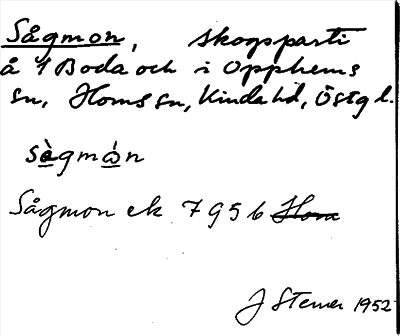 Sågmon, skogsparti
å 1 Boda och i Opphems
sn, Horns sn, Kinda hd, Östg l.
sàgmón
Sågmon ek 7956 Horn
J Stemer 1952